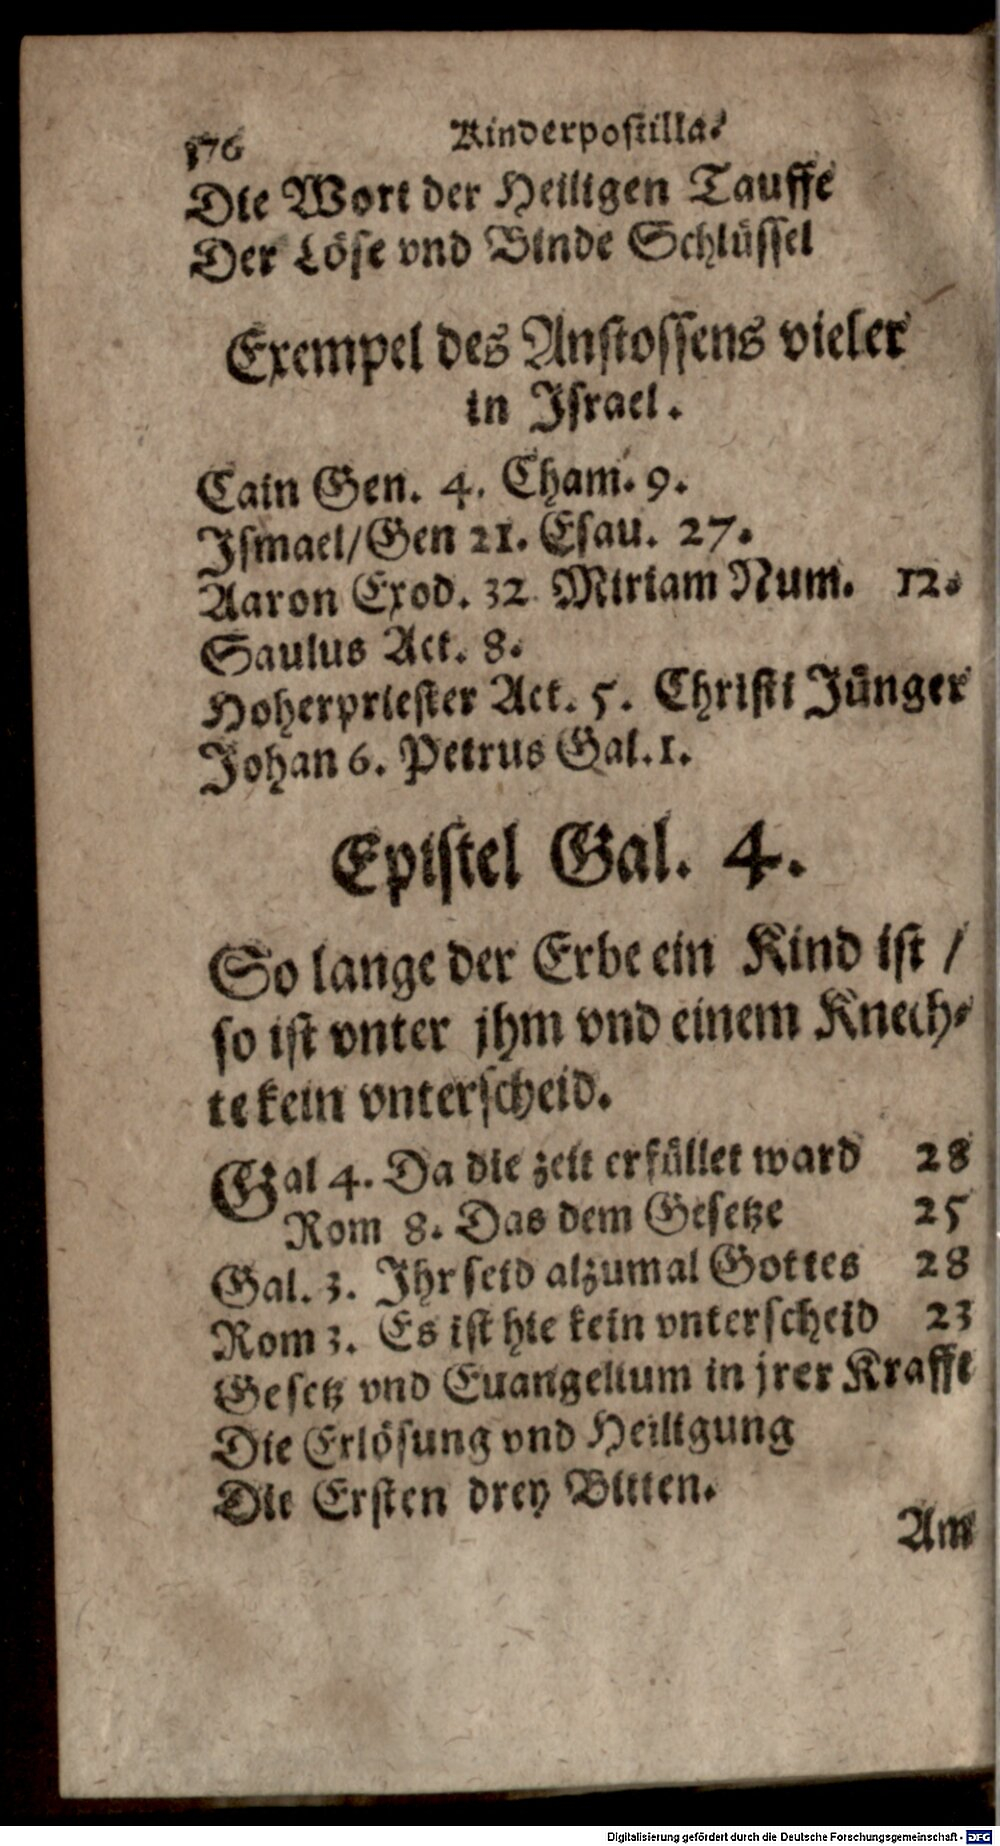 176 Kinderpostilla.
Die Wort der Heiligen Tauffe
Der Löse vnd Binde Schlüssel
Exempel des Anstossens vieler
in Israel.
Cain Gen. 4. Cham. 9.
Ismael/Gen 21. Esau. 27.
Aaron Exod. 32 Miriam Num. 12.
Saulus Act. 8.
Hoherpriester Act. 5. Christi Jünger
Johan 6. Petrus Gal. 1.
Epistel Gal. 4.
So lange der Erbe ein Kind ist /
so ist vnter jhm vnd einem Knech-
te kein vnterscheid.
Gal 4. Da die zeit erfüllet ward 28
Rom 8. Das dem Gesetze 25
Gal. 3. Ihr seid alzumal Gottes 28
Rom 3. Es ist hie kein vnterscheid 23
Gesetz vnd Euangelium in jrer Krafft
Die Erlösung vnd Heiligung
Die Ersten drey Bitten.
Am
Digitalisierung gefördert durch die Deutsche Forschungsgemeinschaft - DFG